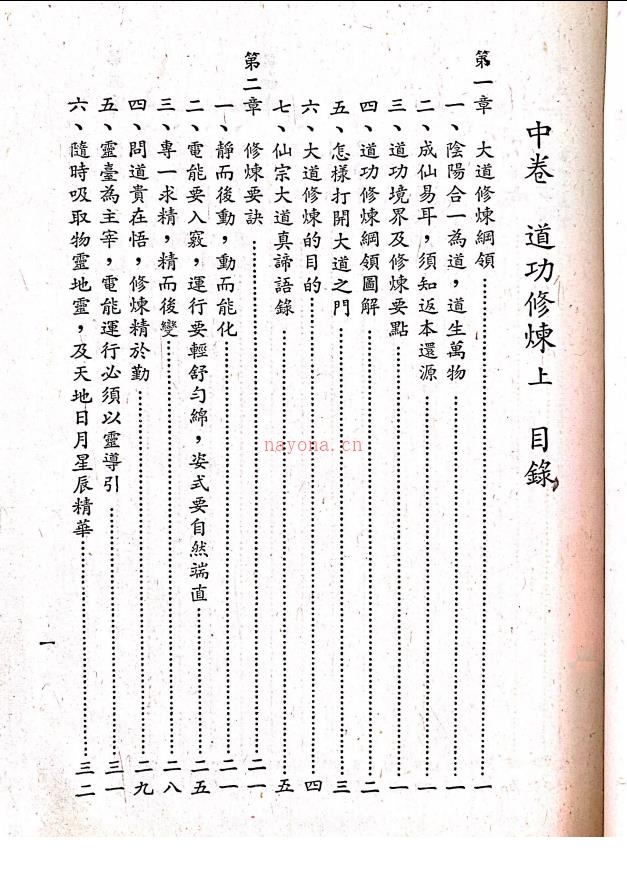 中卷　道功修煉上　目錄
第一章　大道修煉綱領………一
一、陰陽合一為道，道生萬物………一
二、成仙易耳，須知返本還源………一
三、道功境界及修煉要點………一
四、道功修煉綱領圖解………二
五、怎樣打開大道之門………三
六、大道修煉的目的………四
七、仙宗大道真諦語錄………五
第二章　修煉要訣………二一
一、靜而後動，動而能化………二一
二、電能要入竅，運行要輕舒勻綿，姿式要自然端直………二五
三、專一求精，精而後變………二八
四、問道貴在悟，修煉精於勤………二九
五、靈臺為主宰，電能運行必須以靈導引………三一
六、隨時吸取物靈地靈，及天地日月星辰精華………三二
一
nayona.cn